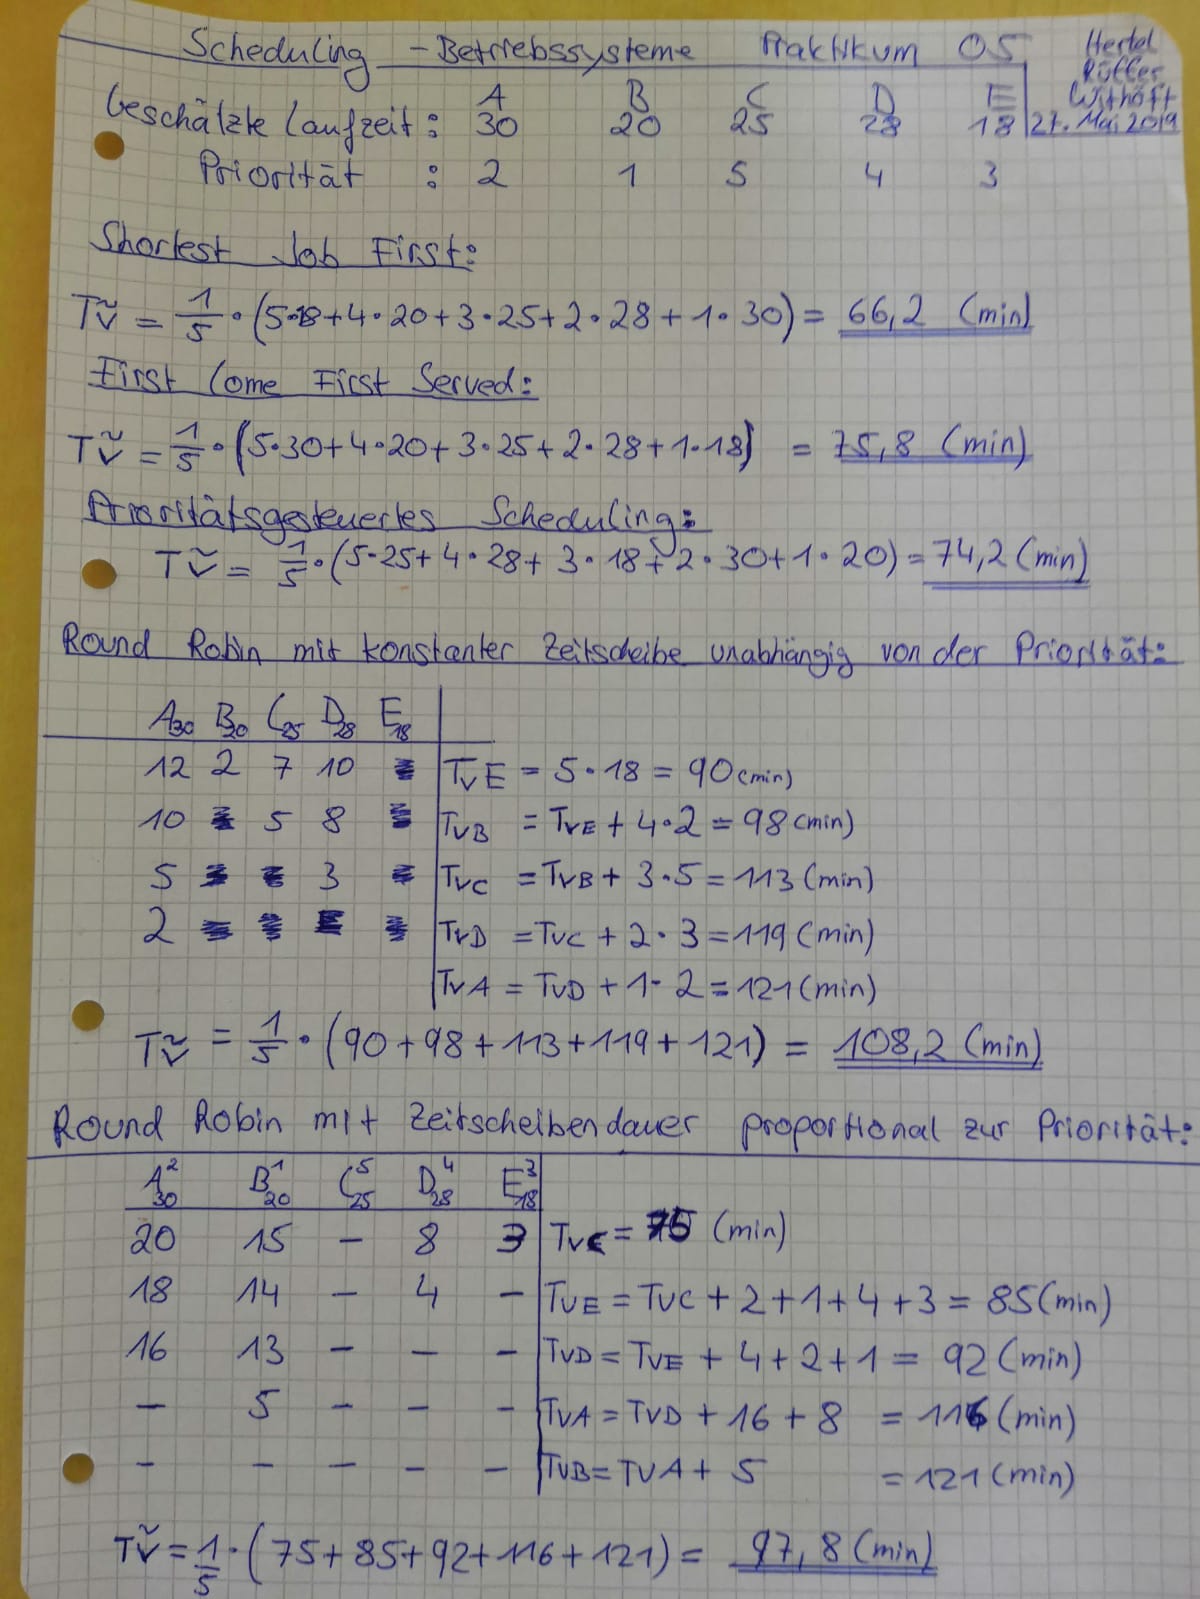 Scheduling - Betriebssysteme Praktikum 05
Hertel
Rütter
Withöft
27. Mai 2019
A B C D E
Geschätzte Laufzeit: 30 20 25 28 18
Priorität : 2 1 5 4 3
Shortest Job First:
Tṽ = 1/5 · (5·18+4·20+3·25+2·28+1·30) = 66,2 (min)
First Come First Served:
Tṽ = 1/5 · (5·30+4·20+3·25+2·28+1·18) = 75,8 (min)
Prioritätsgesteuertes Scheduling:
Tṽ = 1/5 · (5·25+4·28+3·18+2·30+1·20) = 74,2 (min)
Round Robin mit konstanter Zeitscheibe unabhängig von der Priorität:
A30 B20 C25 D28 E18
12 2 7 10 TvE = 5·18 = 90 (min)
10 5 8 TvB = TvE + 4·2 = 98 (min)
5 3 TvC = TvB + 3·5 = 113 (min)
2 TvD = TvC + 2·3 = 119 (min)
TvA = TvD + 1·2 = 121 (min)
Tṽ = 1/5 · (90+98+113+119+121) = 108,2 (min)
Round Robin mit Zeitscheibendauer proportional zur Priorität:
A²30 B¹20 C⁵25 D⁴28 E³18
20 15 - 8 3 TvC = 75 (min)
18 14 - 4 - TvE = TvC + 2+1+4+3 = 85 (min)
16 13 - - - TvD = TvE + 4+2+1 = 92 (min)
- 5 - - - TvA = TvD + 16 + 8 = 116 (min)
- - - - - TvB = TvA + 5 = 121 (min)
Tṽ = 1/5 · (75+85+92+116+121) = 97,8 (min)